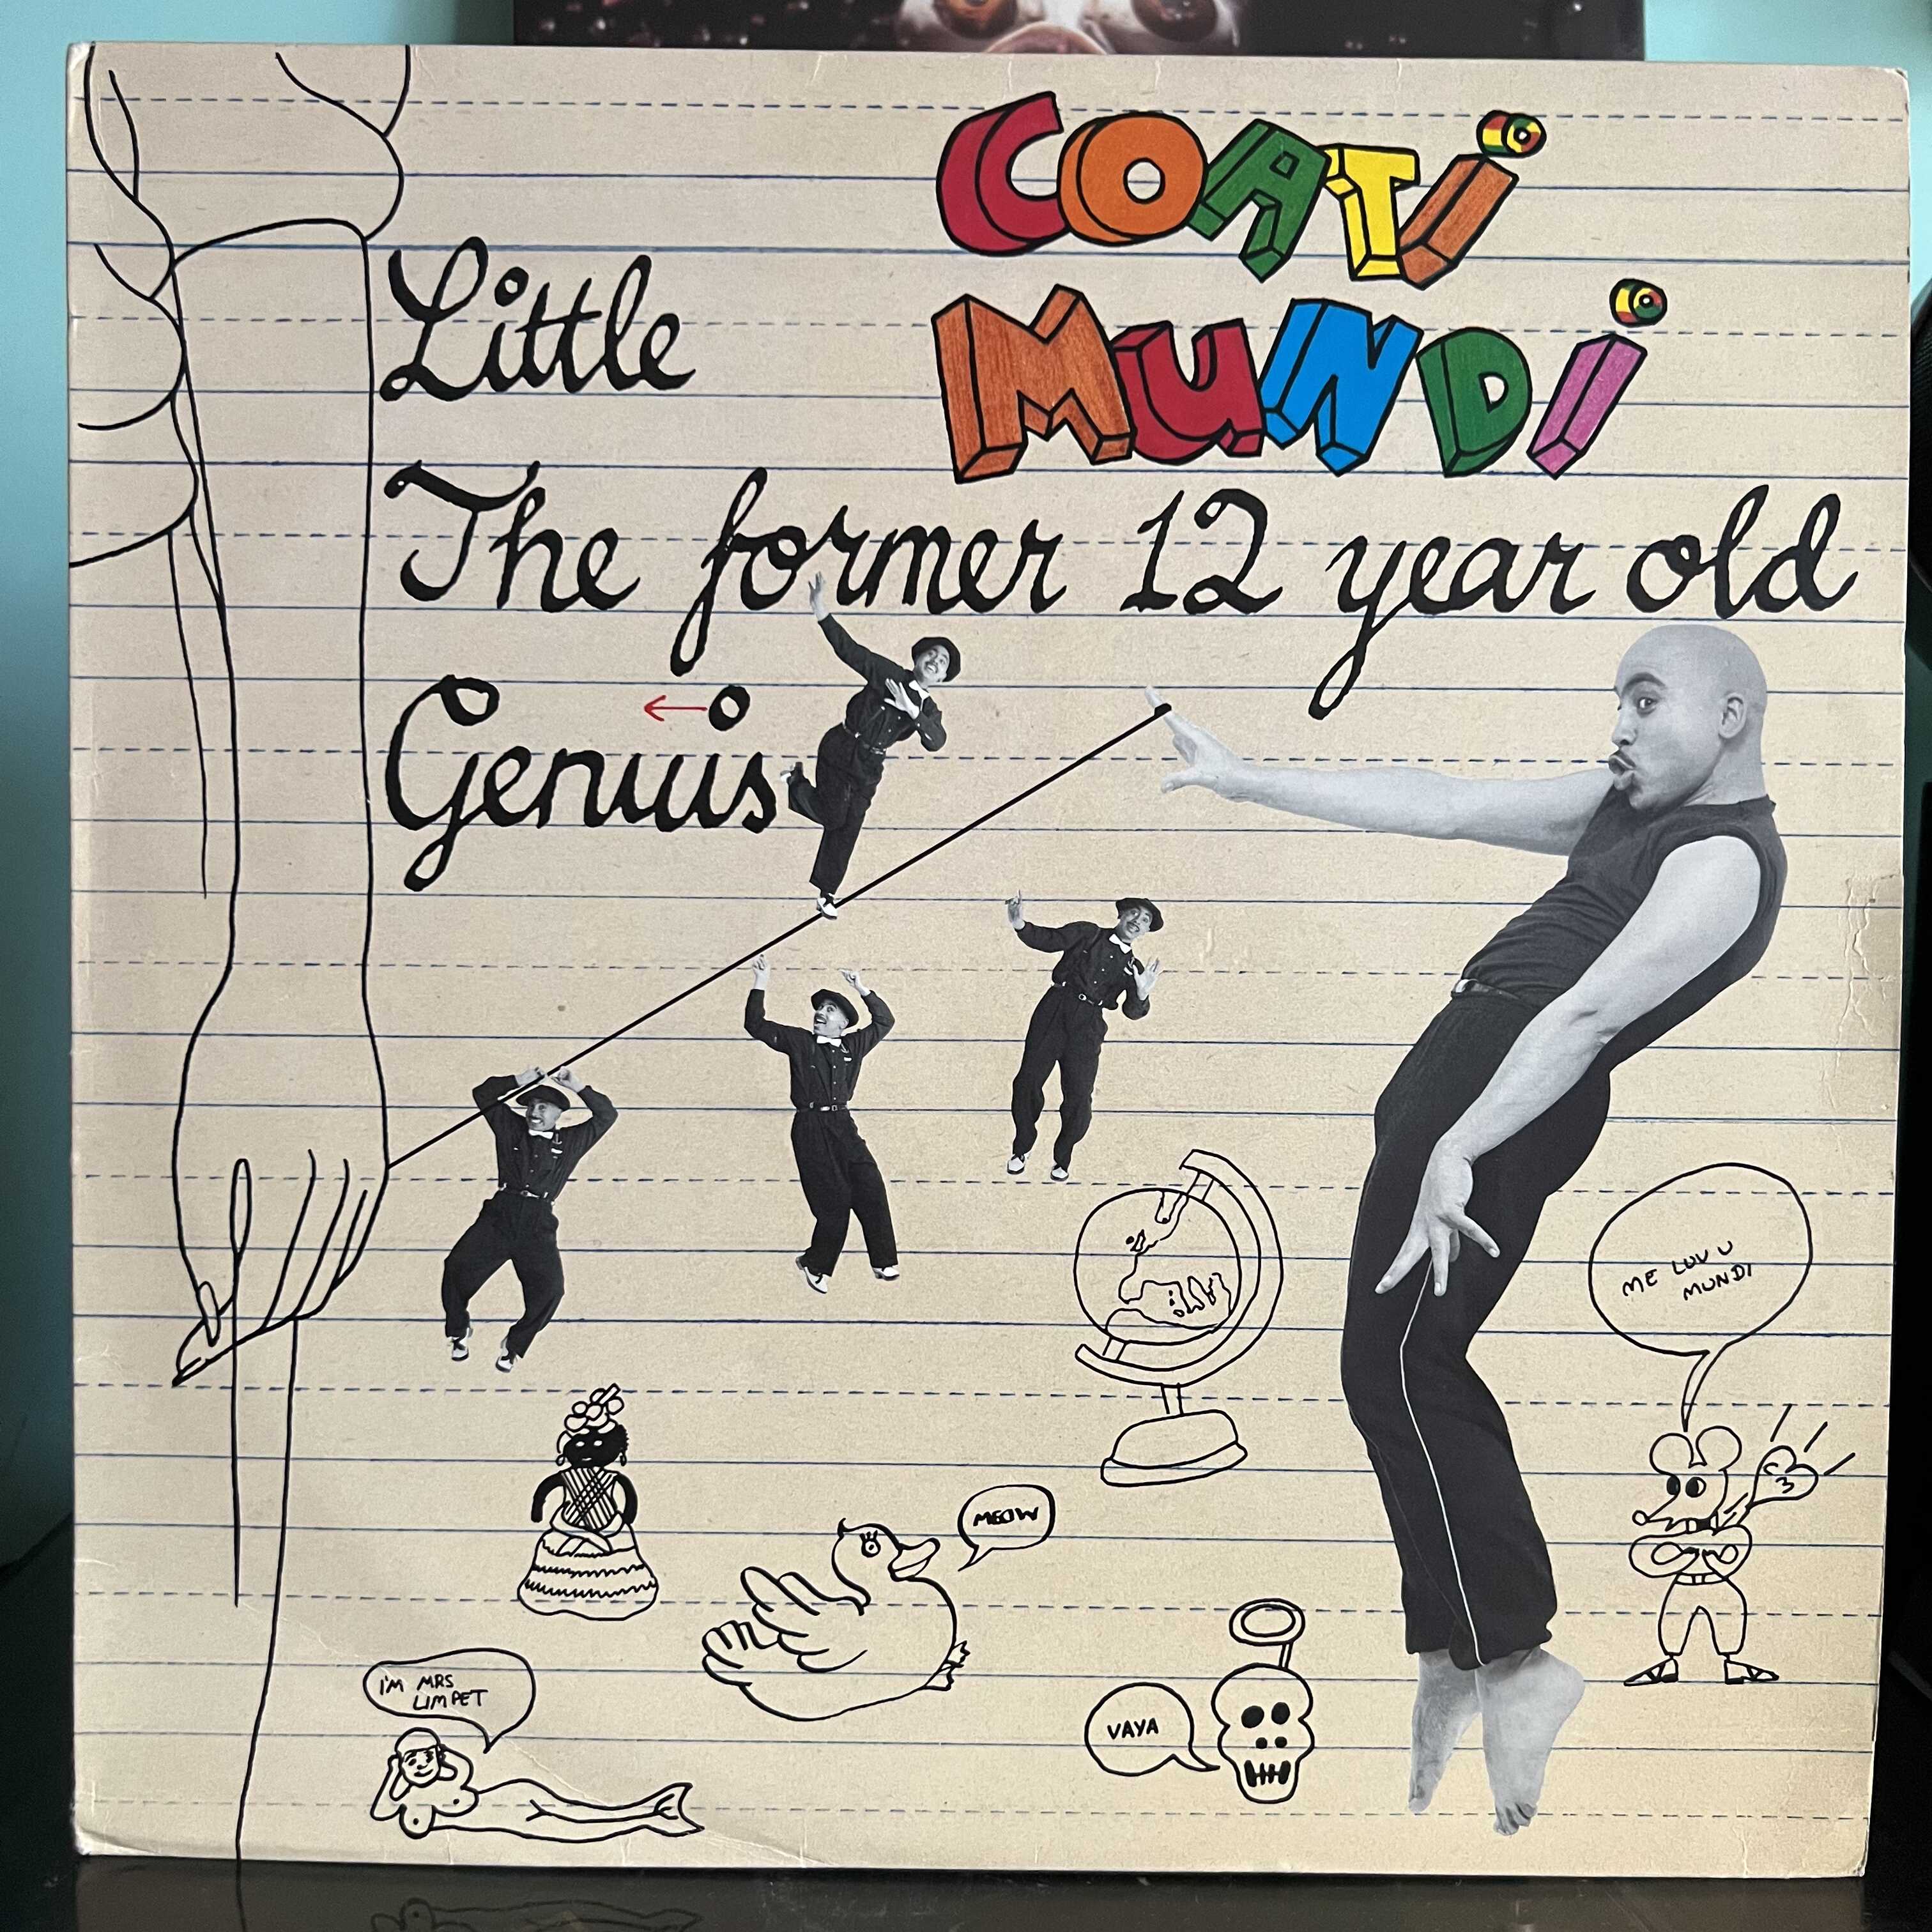 COATi
MUNDi
Little
The former 12 year old
Genius
ME LUV U
MUNDI
MEOW
I'M MRS
LIMPET
VAYA